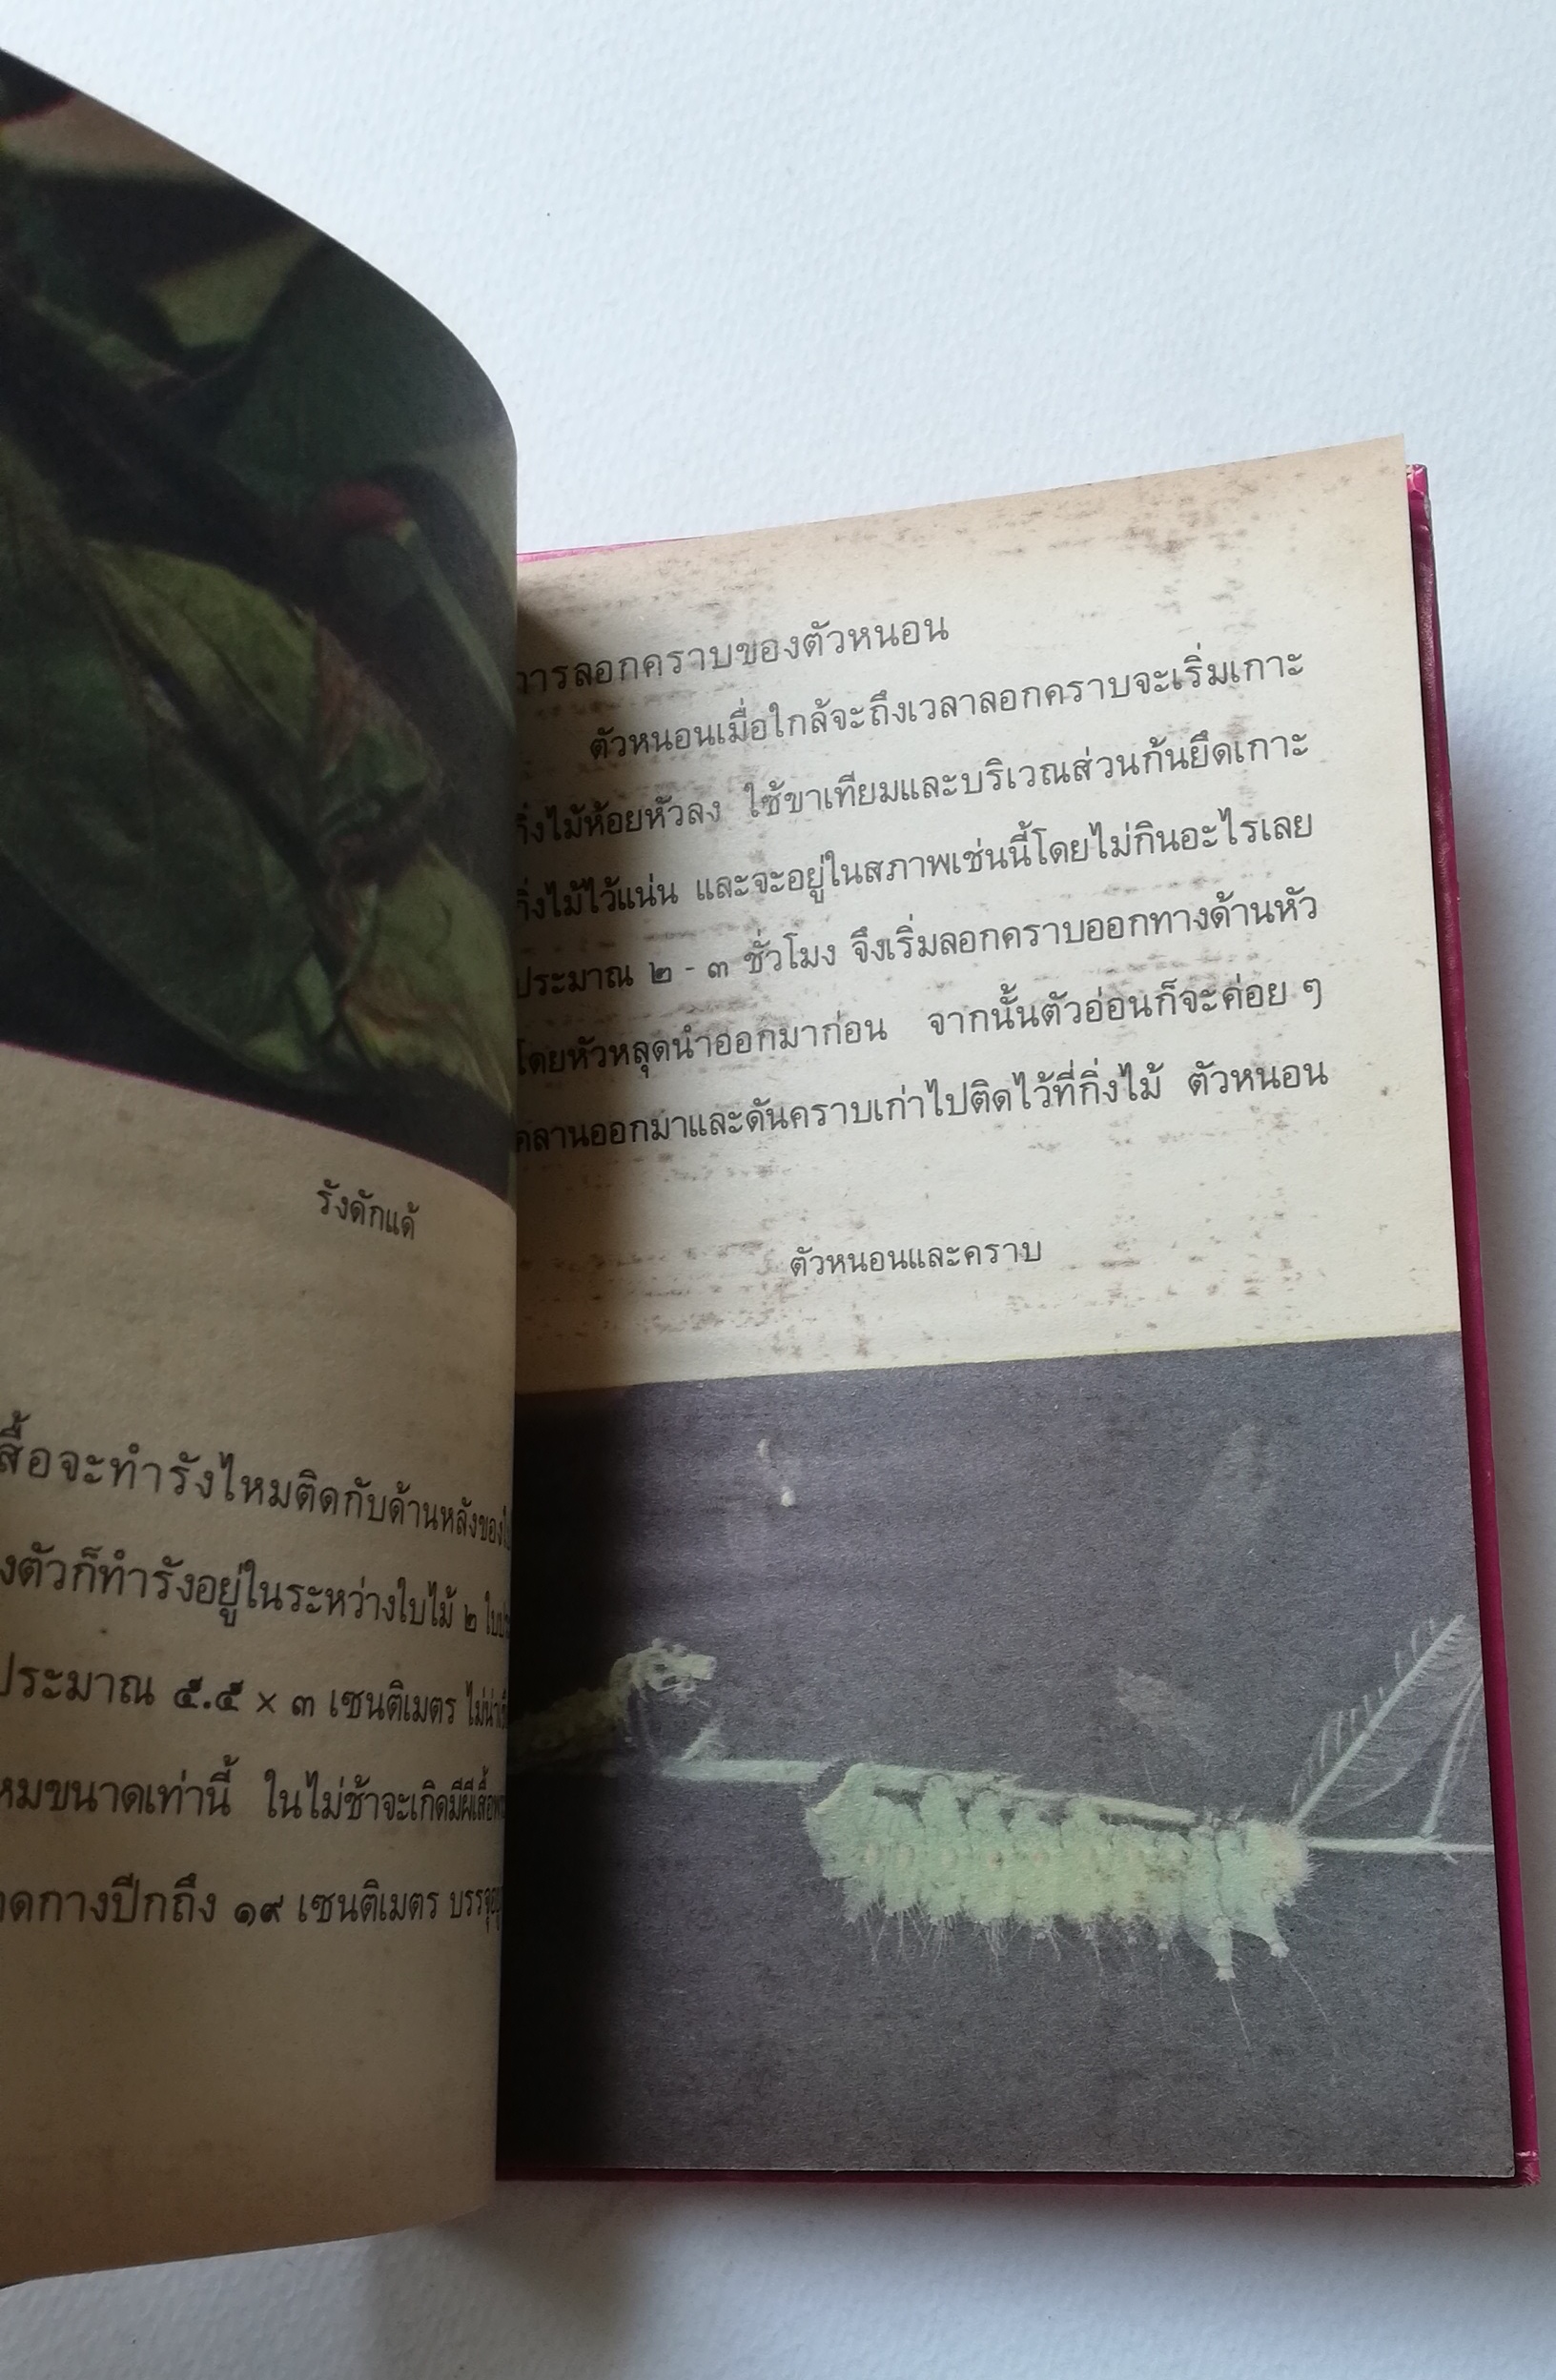 รังดักแด้
สื้อจะทำรังไหมติดกับด้านหลังของใ
งตัวก็ทำรังอยู่ในระหว่างใบไม้ ๒
ประมาณ ๕.๕ × ๓ เซนติเมตร
หมขนาดเท่านี้ ในไม่ช้าจะเกิดมีผีเสื้อ
าดกางปีกถึง ๑๙ เซนติเมตร
การลอกคราบของตัวหนอน
ตัวหนอนเมื่อใกล้จะถึงเวลาลอกคราบจะเริ่มเกาะ
กิ่งไม้ห้อยหัวลง ใช้ขาเทียมและบริเวณส่วนก้นยึดเกาะ
กิ่งไม้ไว้แน่น และจะอยู่ในสภาพเช่นนี้โดยไม่กินอะไรเลย
ประมาณ ๒ - ๓ ชั่วโมง จึงเริ่มลอกคราบออกทางด้านหัว
โดยหัวหลุดนำออกมาก่อน จากนั้นตัวอ่อนก็จะค่อย ๆ
คลานออกมาและดันคราบเก่าไปติดไว้ที่กิ่งไม้ ตัวหนอน
ตัวหนอนและคราบ